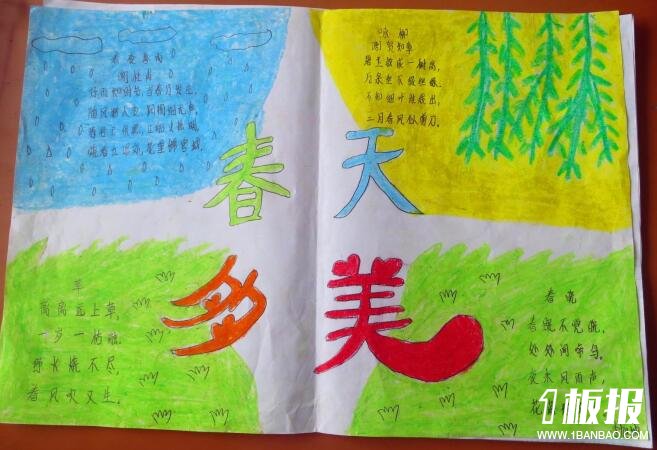 春夜喜雨
杜甫
好雨知时节,当春乃发生。
随风潜入夜,润物细无声。
花重锦官城。
咏柳
贺知章
碧玉妆成一树高,
万条垂下绿丝绦。
不知细叶谁裁出,
二月春风似剪刀。
春天
多美
草
离离原上草,
一岁一枯荣。
野火烧不尽,
春风吹又生。
春晓
春眠不觉晓,
处处闻啼鸟。
夜来风雨声,
花
1板报
WWW.1BANBAO.COM